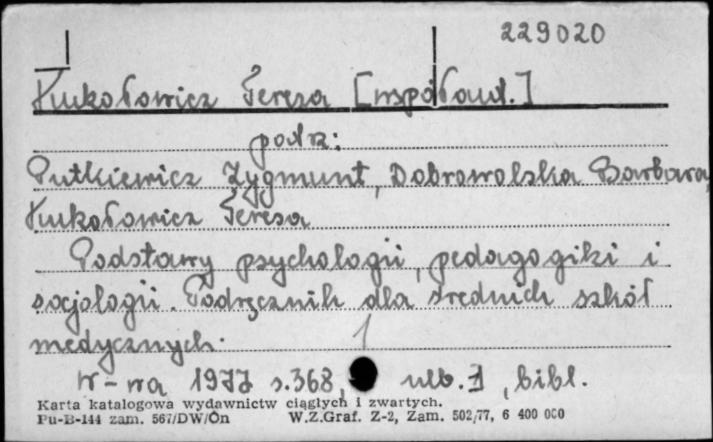 229020
Kukołowicz Teresa [współaut.]
podz:
Putkiewicz Zygmunt, Dobrowolska Barbara,
Kukołowicz Teresa
Podstawy psychologii, pedagogiki i
socjologii. Podręcznik dla średnich szkół
medycznych.
W-wa 1977 s.368, nlb. 1, bibl.
Karta katalogowa wydawnictw ciągłych i zwartych.
Pu-B-144 zam. 567/DW/On W.Z.Graf. Z-2, Zam. 502/77, 6 400 000